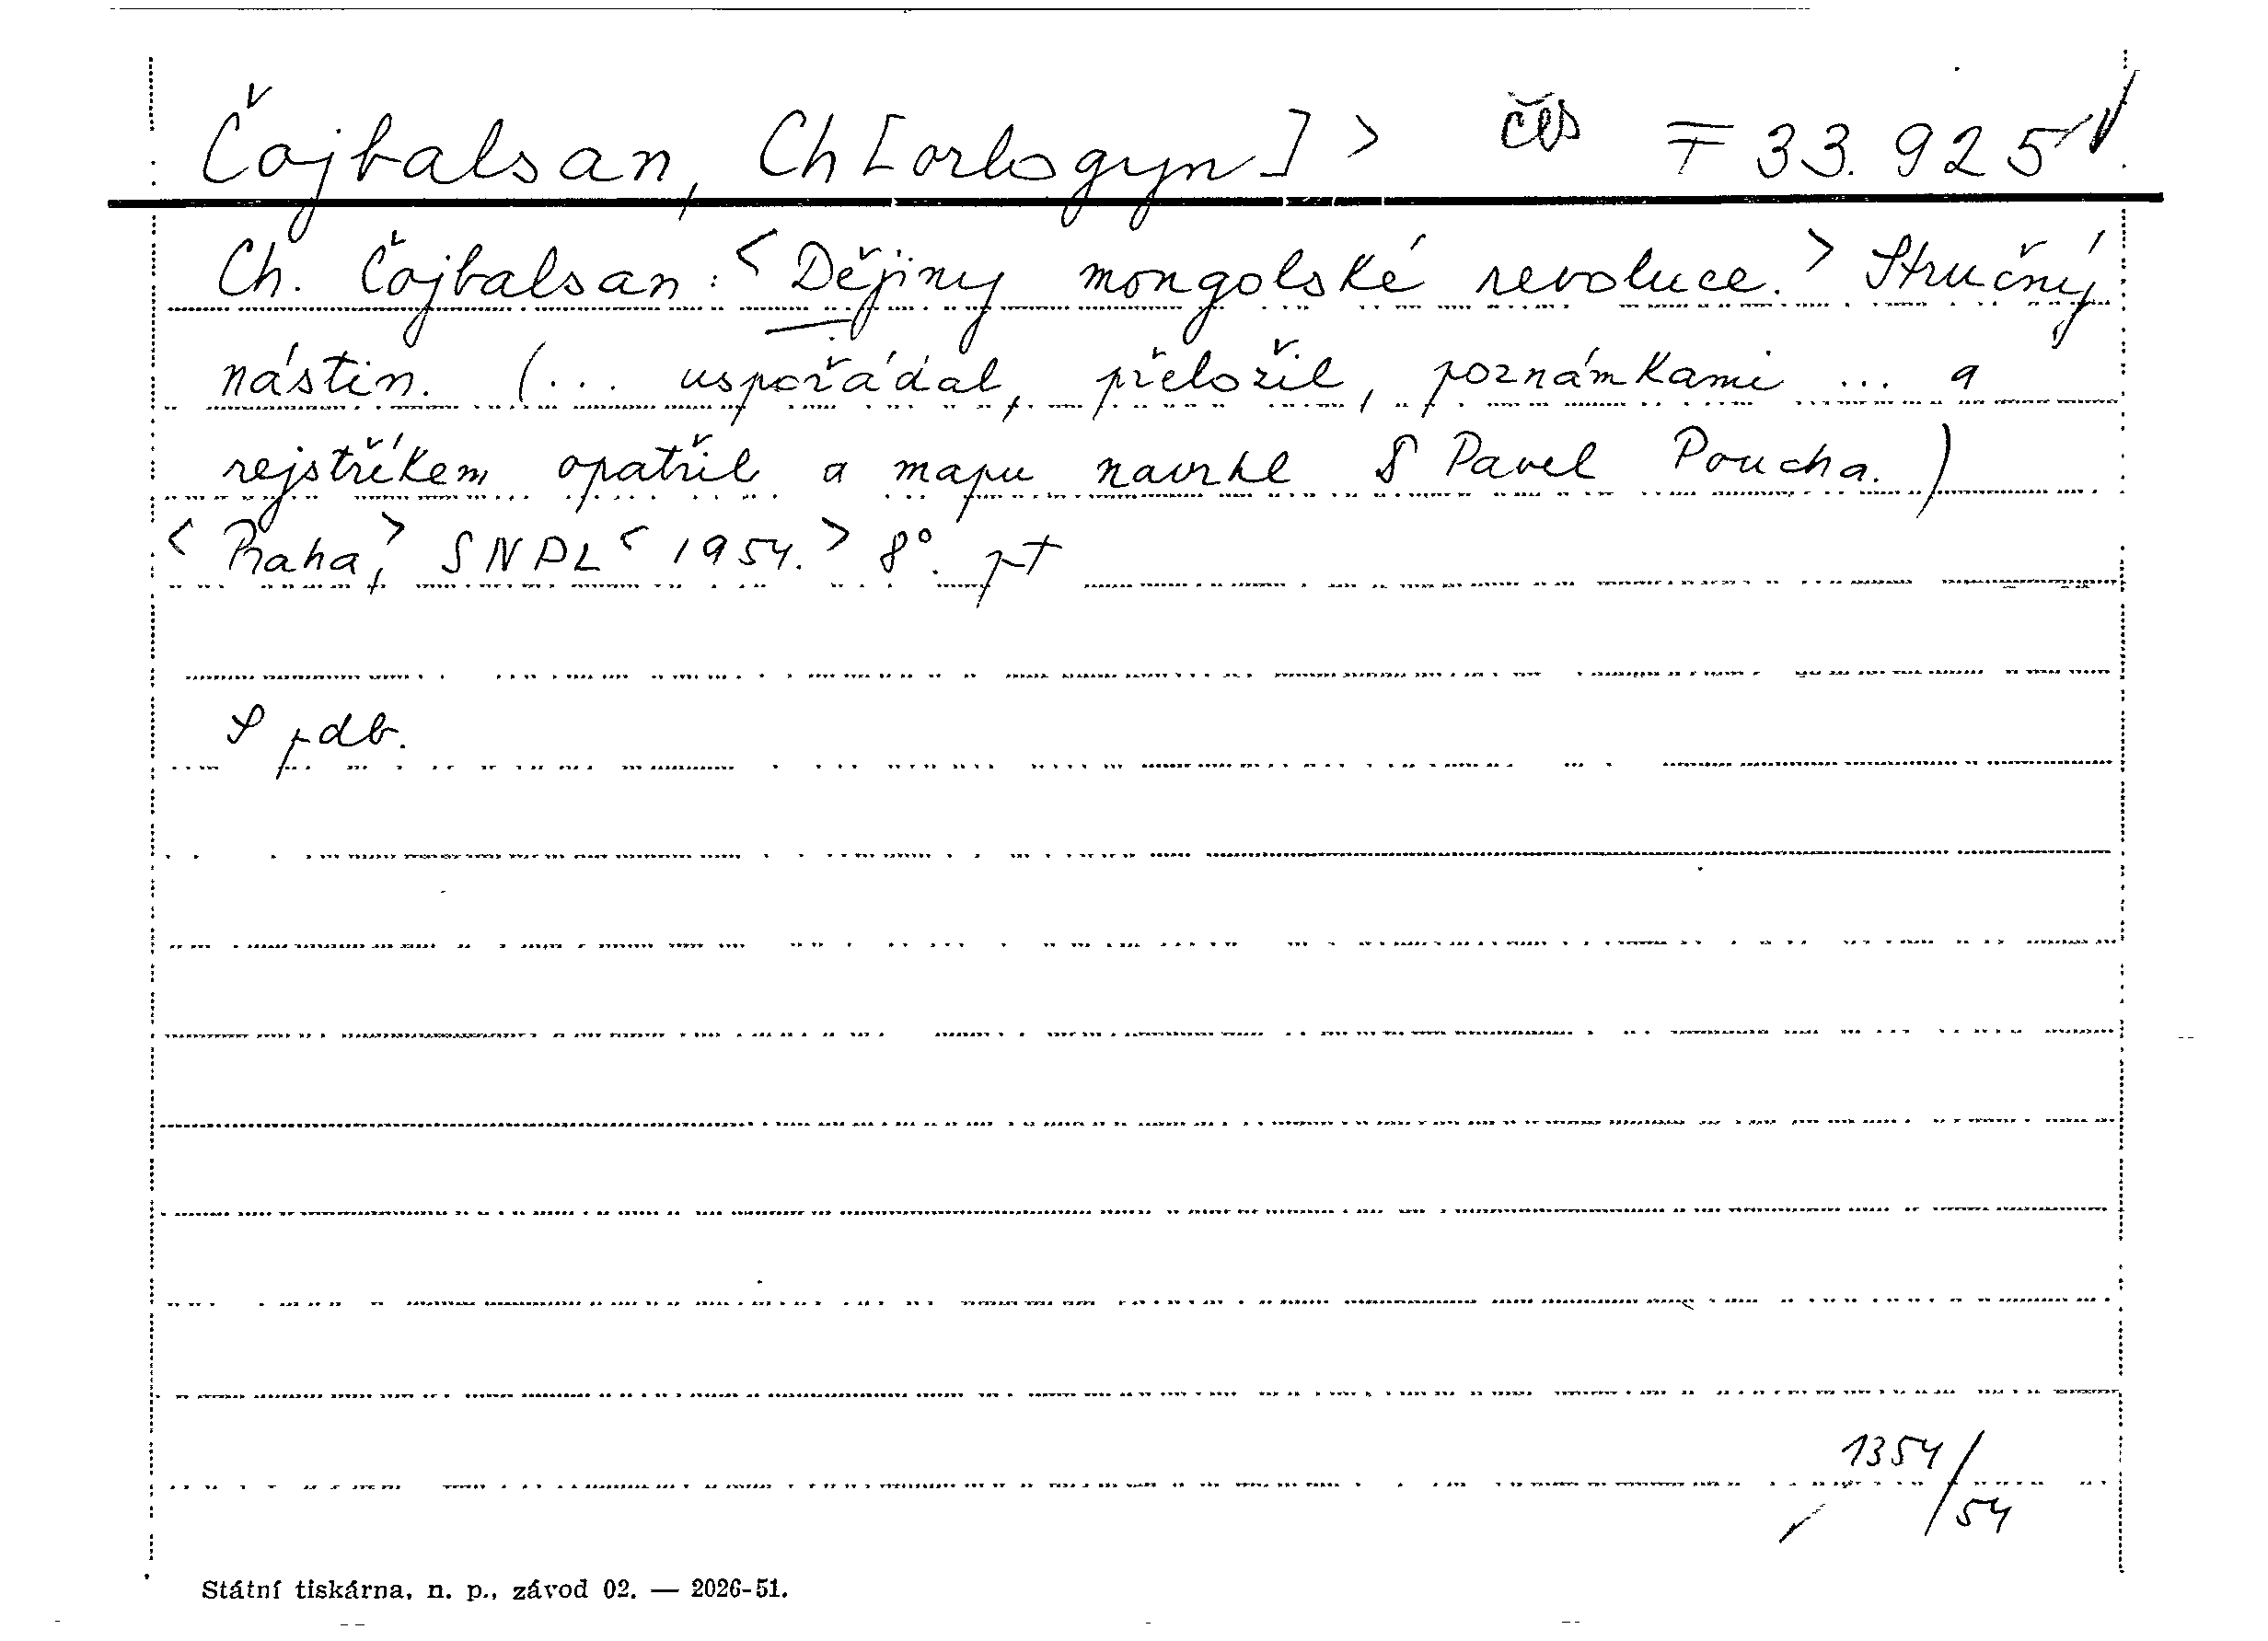 Čojbalsan, Ch[orlogyn] > čes F 33.925
Ch. Čojbalsan: <Dějiny mongolské revoluce.> Stručný
nástin. (... uspořádal, přeložil, poznámkami ... a
rejstříkem opatřil a mapu navrhl Pavel Poucha.)
<Praha,> SNPL <1954.> 8°.
pdb.
1354/54
Státní tiskárna, n. p., závod 02. — 2026-51.